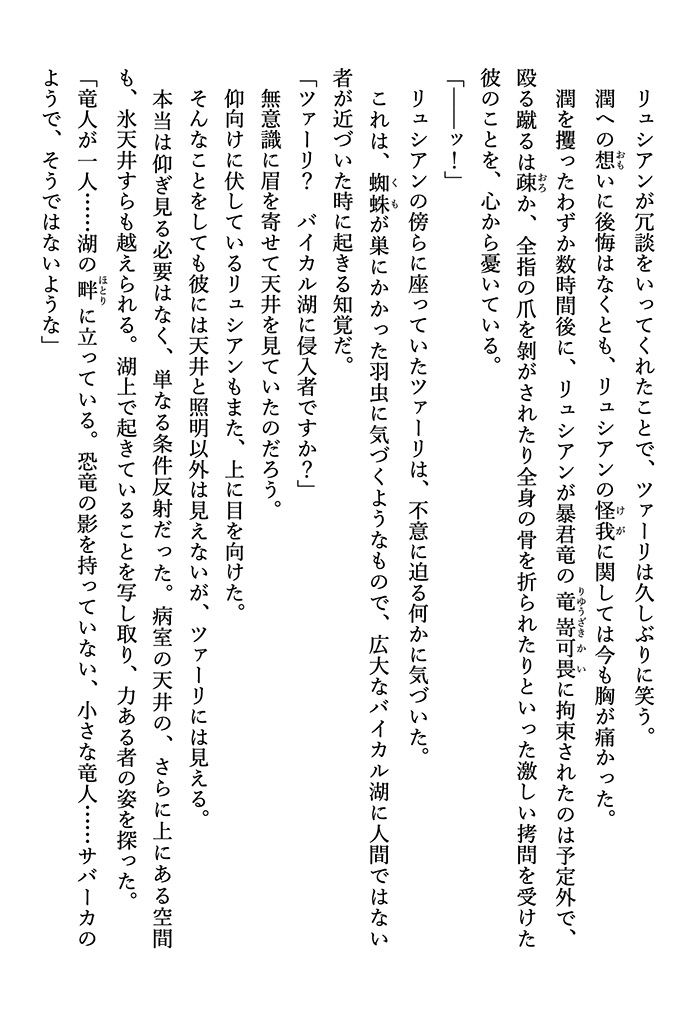 リュシアンが冗談をいってくれたことで、ツァーリは久しぶりに笑う。
潤への想いに後悔はなくとも、リュシアンの怪我に関しては今も胸が痛かった。
潤を攫ったわずか数時間後に、リュシアンが暴君竜の竜嵜可畏に拘束されたのは予定外で、
殴る蹴るは疎か、全指の爪を剝がされたり全身の骨を折られたりといった激しい拷問を受けた
彼のことを、心から憂いている。
「――ッ！」
リュシアンの傍らに座っていたツァーリは、不意に迫る何かに気づいた。
これは、蜘蛛が巣にかかった羽虫に気づくようなもので、広大なバイカル湖に人間ではない
者が近づいた時に起きる知覚だ。
「ツァーリ？　バイカル湖に侵入者ですか？」
無意識に眉を寄せて天井を見ていたのだろう。
仰向けに伏しているリュシアンもまた、上に目を向けた。
そんなことをしても彼には天井と照明以外は見えないが、ツァーリには見える。
本当は仰ぎ見る必要はなく、単なる条件反射だった。病室の天井の、さらに上にある空間
も、氷天井すらも越えられる。湖上で起きていることを写し取り、力ある者の姿を探った。
「竜人が一人……湖の畔に立っている。恐竜の影を持っていない、小さな竜人……サバーカの
ようで、そうではないような」